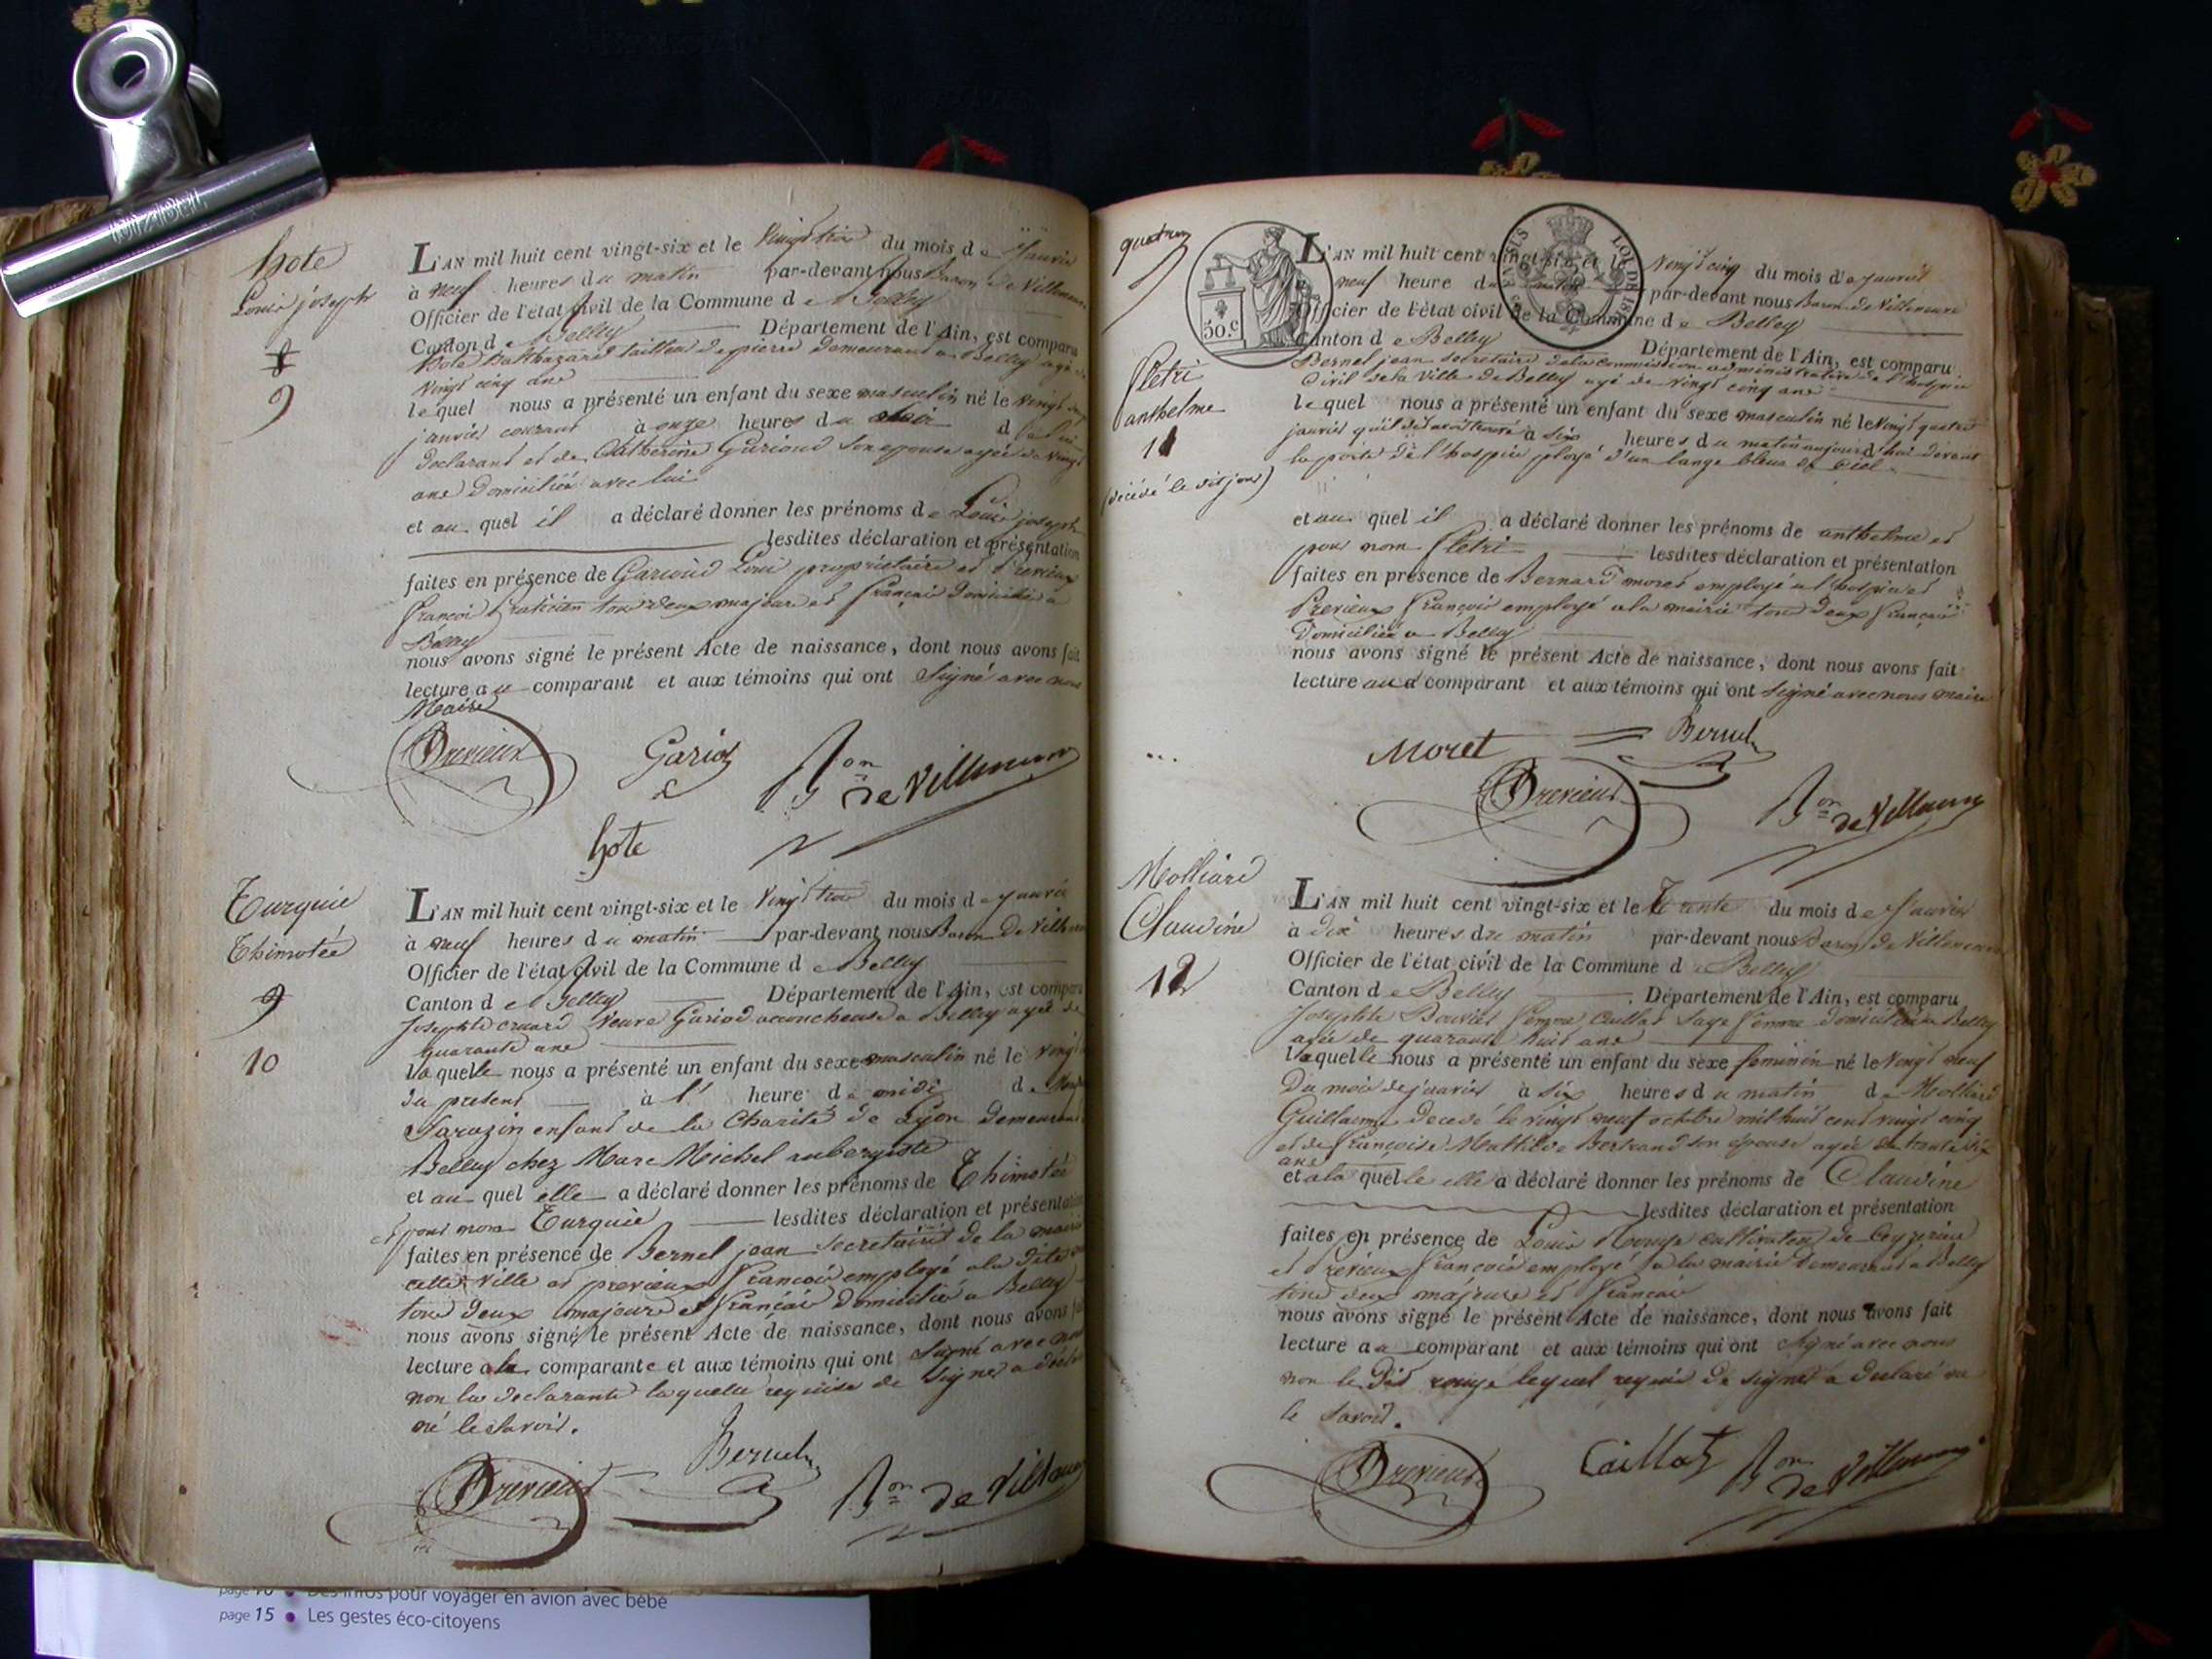 hote
Louis joseph
8
9
L'AN mil huit cent vingt-six et le Vingt trois du mois de Janvier
à neuf heures du matin par-devant nous Baron de Villeneuve
Officier de l'état civil de la Commune de Belley
Canton de Belley Département de l'Ain, est comparu
hote Balthazard tailleur de pierre demeurant a Belley agé de
vingt cinq ans
lequel nous a présenté un enfant du sexe masculin né le vingt
janvier courant à onze heures du soir de lui
declarant et de Catherine Garioud son epouse agée de vingt
ans domiciliée avec lui
et au quel il a déclaré donner les prénoms de Louis joseph
lesdites déclaration et présentation
faites en présence de Garioud Louis propriétaire et Previeux
françois praticien tous deux majeurs et français domiciliés a
Belley
nous avons signé le présent Acte de naissance, dont nous avons fait
lecture au comparant et aux témoins qui ont Signé avec nous
Maire
Previeux Gariod Bon de Villeneuve
hote
Turquie
Thimotée
9
10
L'AN mil huit cent vingt-six et le Vingt trois du mois de janvier
à neuf heures du matin par-devant nous Baron de Villeneuve
Officier de l'état civil de la Commune de Belley
Canton de Belley Département de l'Ain, est comparu
Josephte cruard Veuve Gariod accoucheuse a Belley agée de
quarante ans
laquelle nous a présenté un enfant du sexe masculin né le vingt
du present à l' heure de midi de
Sarazin enfant de la Charité de Lyon demeurant
Belley chez Marc Michel aubergiste
et au quel elle a déclaré donner les prénoms de Thimotée
et pour nom Turquie lesdites déclaration et présentation
faites en présence de Bernel jean secretaire de la mairie
cette Ville et previeux françois employé a la dite
tous deux majeurs et français domiciliés a Belley
nous avons signé le présent Acte de naissance, dont nous avons fait
lecture a la comparante et aux témoins qui ont signé avec nous
non la declarante laquelle requise de signer a déclaré
ne le savoir.
Previeux Bernel Bon de Villeneuve
quatre
30.C
LOI DE 18
Pletri
anthelme
11
(décédé le dit jour)
L'AN mil huit cent vingt-six et le Vingt cinq du mois de janvier
neuf heure du matin par-devant nous Baron de Villeneuve
Officier de l'état civil de la Commune de Belley
Canton de Belley Département de l'Ain, est comparu
Bernel jean secretaire de la commission administrative de l'hospice
Civil de la Ville de Belley agé de vingt cinq ans
lequel nous a présenté un enfant du sexe masculin né le vingt quatre
janvier qu'il à six heures du matin aujourd'hui devant
la porte de l'hospice ployé d'un lange bleu de ciel
et au quel il a déclaré donner les prénoms de anthelme et
pour nom Pletri lesdites déclaration et présentation
faites en présence de Bernard moret employé a l'hospice et
Previeux François employé a la mairie tous deux français
Domiciliés a Belley
nous avons signé le présent Acte de naissance, dont nous avons fait
lecture au comparant et aux témoins qui ont signé avec nous maire
Moret Bernel
Previeux Bon de Villeneuve
Molliard
Claudine
12
L'AN mil huit cent vingt-six et le trente du mois de Janvier
à Dix heures du matin par-devant nous Baron de Villeneuve
Officier de l'état civil de la Commune de Belley
Canton de Belley Département de l'Ain, est comparu
Josephte Bouvier femme Caillat Sage femme domiciliée a Belley
agée de quarante huit ans
laquelle nous a présenté un enfant du sexe feminin né le vingt neuf
Du mois de janvier à six heures du matin de Molliard
Guillaume decedé le vingt neuf octobre mil huit cent vingt cinq
et de françoise Mathilde Bertrand son epouse agée de trente six
ans
et a la quelle elle a déclaré donner les prénoms de Claudine
lesdites déclaration et présentation
faites en présence de Louis Rouge cultivateur de Ceyzerieu
et Prévieux françois employé a la mairie demeurant a Belley
tous deux majeurs et français
nous avons signé le présent Acte de naissance, dont nous avons fait
lecture a comparant et aux témoins qui ont signé avec nous
non le dit rouge lequel requis de signer a declaré ne
le savoir.
Previeux Caillat Bon de Villeneuve
Des infos pour voyager en avion avec bébé
page 15 • Les gestes éco-citoyens